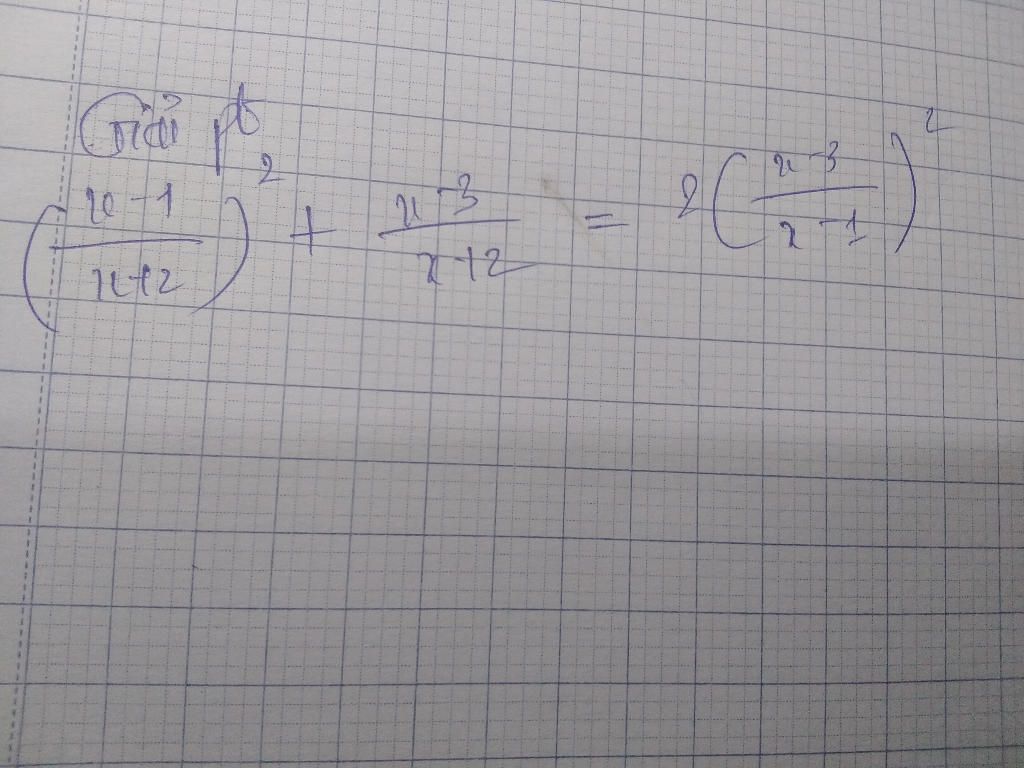 Giải pt
(x-1/x+2)² + x-3/x+2 = 2(x-3/x-1)²